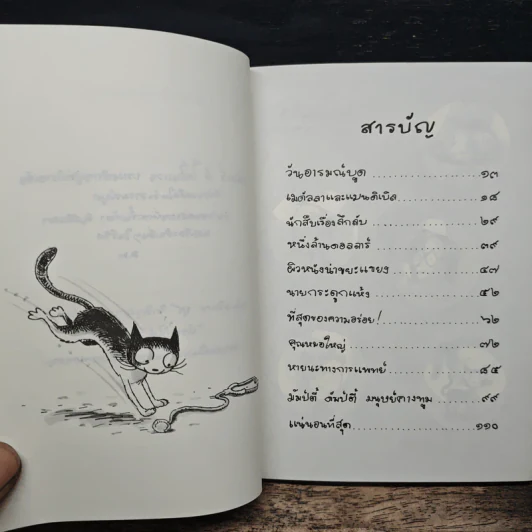 สารบัญ
วันอารมณ์บูด ๑๓
เมตัลลาและแบนดิเบิล ๑๘
นักสืบเรื่องลึกลับ ๒๙
หนึ่งล้านดอลลาร์ ๓๙
ผิวหนังน่าขยะแขยง ๔๗
นายกระดูกแห้ง ๕๒
ที่สุดของความอร่อย! ๖๒
คุณหมอใหญ่ ๗๒
หายนะทางการแพทย์ ๘๕
มัมป์ตี้ ดัมป์ตี้ มนุษย์คางทูม ๙๙
แน่นอนที่สุด ๑๑๐